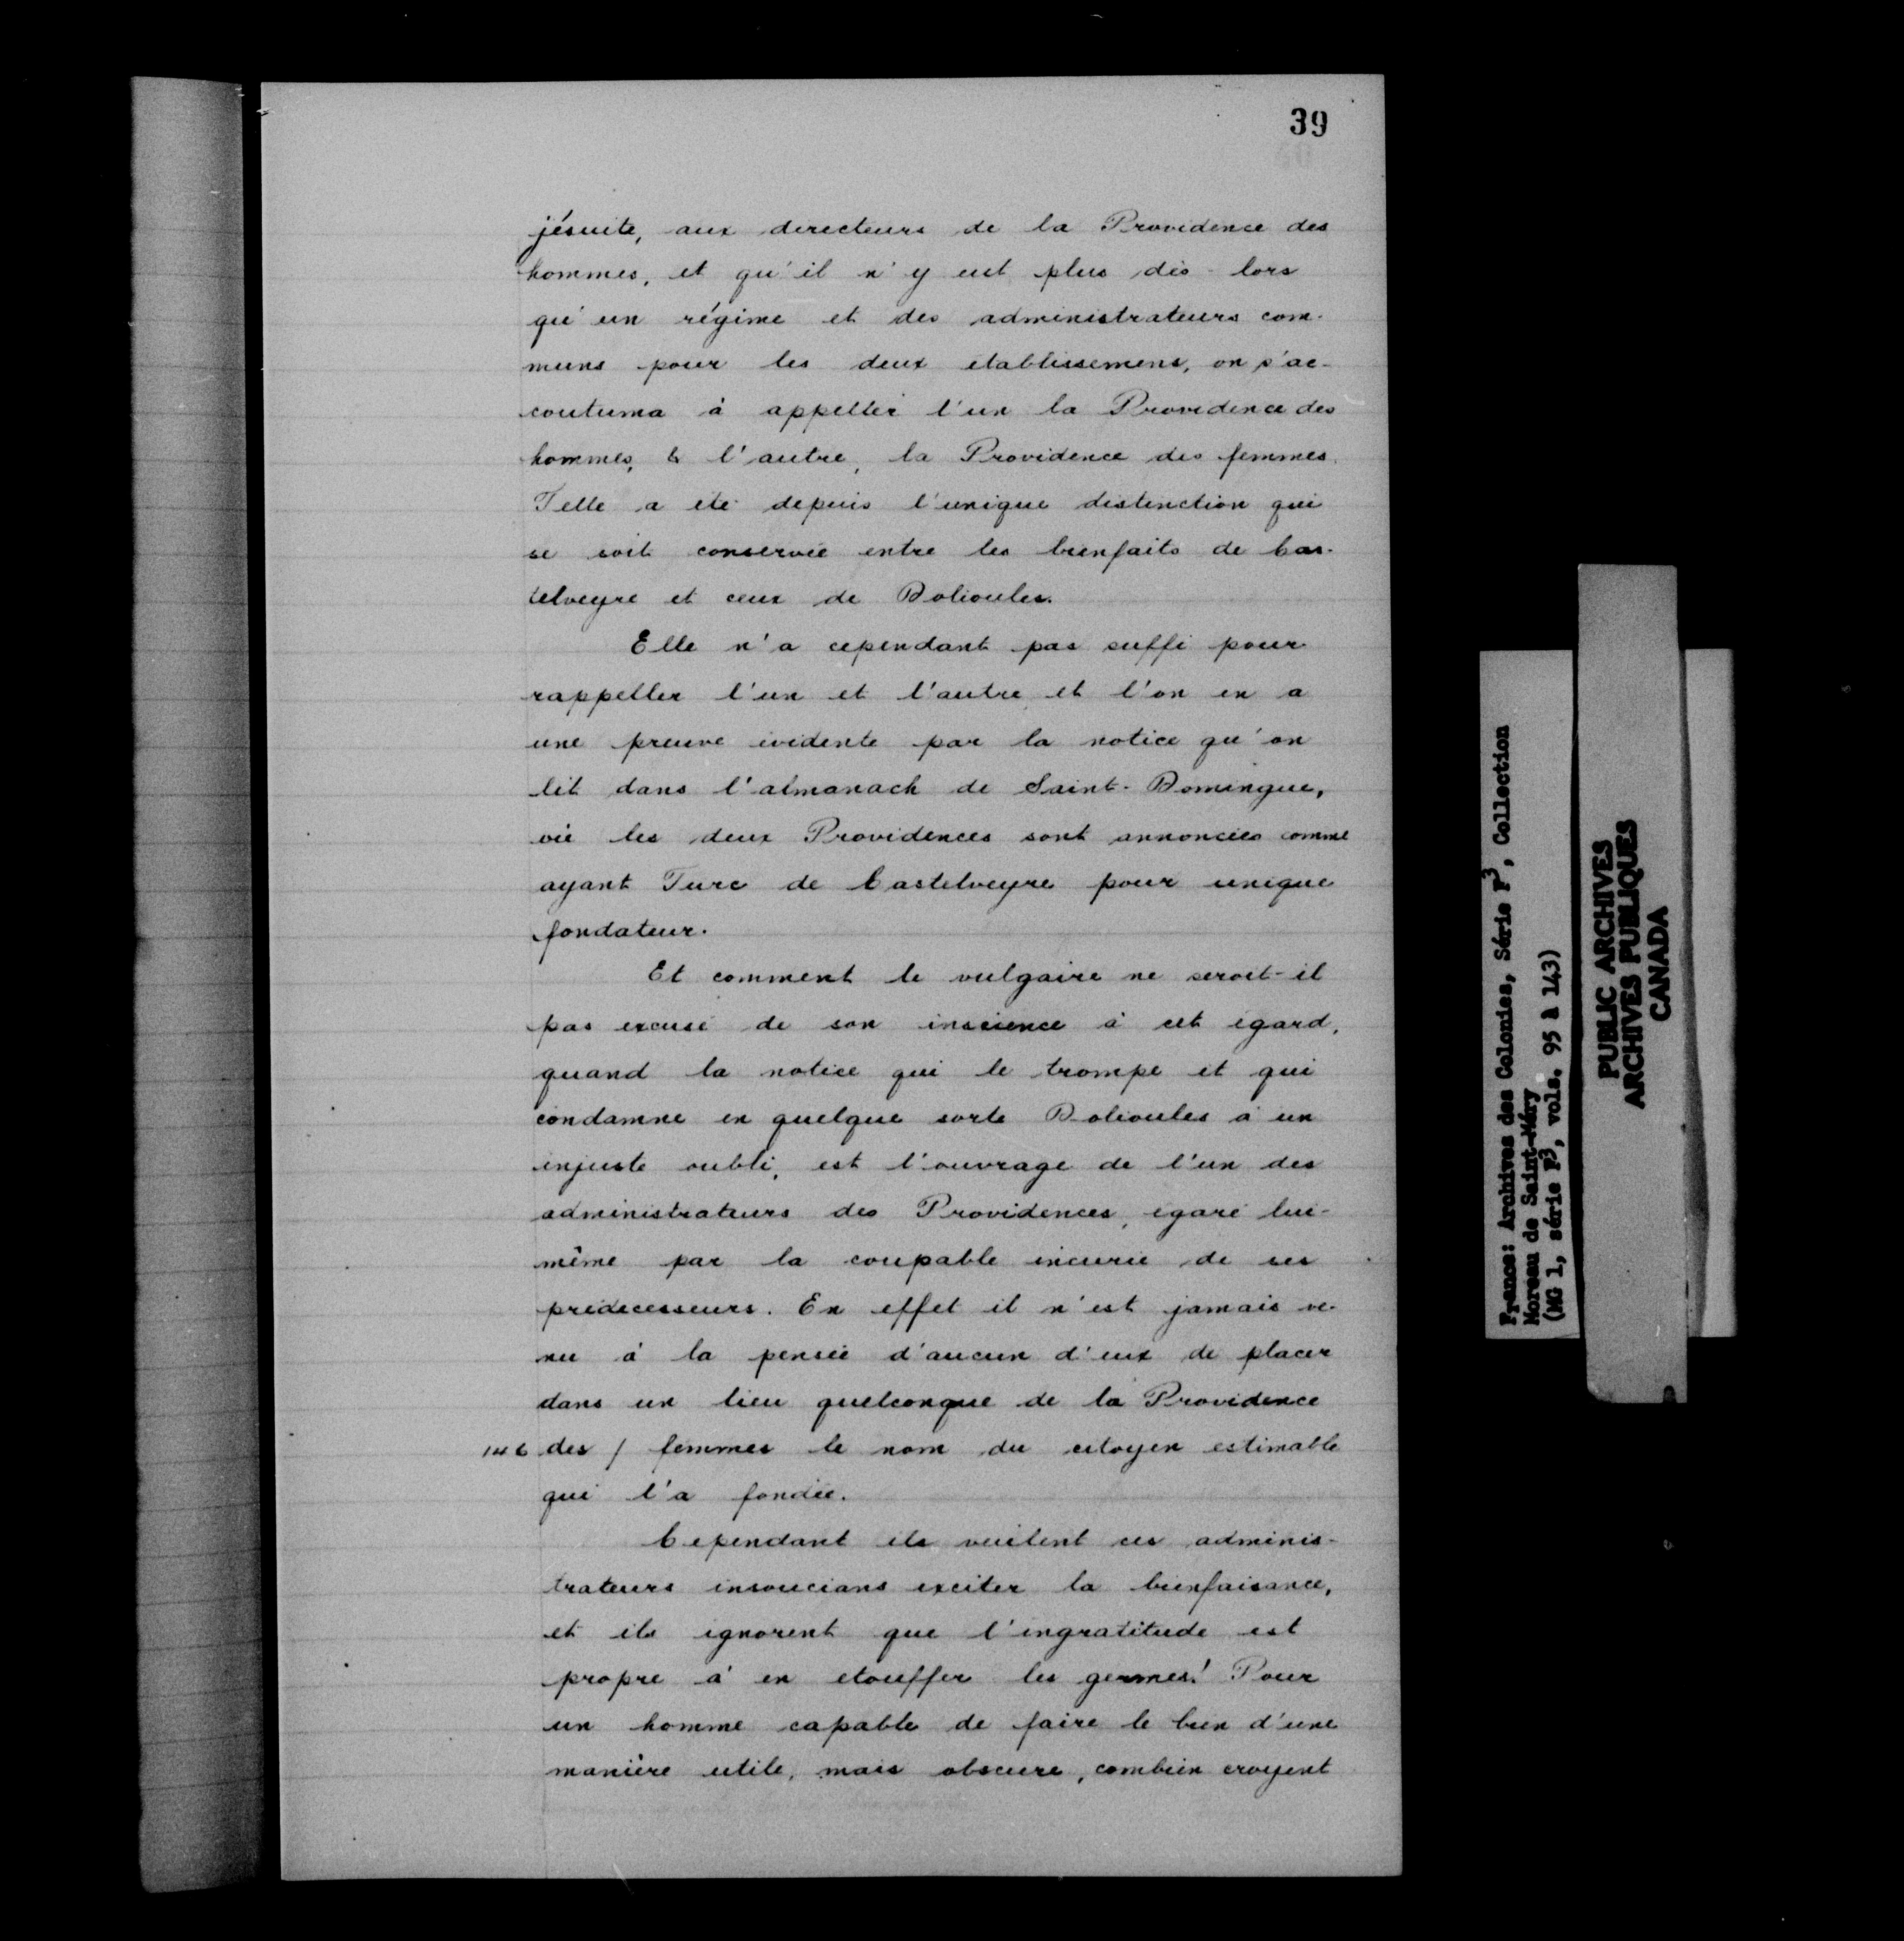 39
jésuite, aux directeurs de la Providence des
hommes, et qu'il n'y eut plus dès-lors
qu'un régime et des administrateurs com-
muns pour les deux etablissemens, on s'ac-
coutuma à appeller l'un la Providence des
hommes, & l'autre, la Providence des femmes.
Telle a été depuis l'unique distinction qui
se soit conservée entre les bienfaits de Cas-
telveyre et ceux de Dolioules.
Elle n'a cependant pas suffi pour
rappeller l'un et l'autre et l'on en a
une preuve évidente par la notice qu'on
lit dans l'almanach de Saint-Domingue,
où les deux Providences sont annoncées comme
ayant Turc de Castelveyre pour unique
fondateur.
Et comment le vulgaire ne seroit-il
pas excusé de son inscience à cet égard,
quand la notice qui le trompe et qui
condamne en quelque sorte Dolioules à un
injuste oubli, est l'ouvrage de l'un des
administrateurs des Providences, égaré lui-
même par la coupable incurie de ses
prédécesseurs. En effet il n'est jamais ve-
nu à la pensée d'aucun d'eux de placer
dans un lieu quelconque de la Providence
146 des / femmes le nom du citoyen estimable
qui l'a fondée.
Cependant ils veulent ces adminis-
trateurs insoucians exciter la bienfaisance,
et ils ignorent que l'ingratitude est
propre à en etouffer les germes! Pour
un homme capable de faire le bien d'une
manière utile, mais obscure, combien croyent
France: Archives des Colonies, Série F3, Collection
Moreau de Saint-Méry
(MG 1, série F3, vols. 95 à 143)
PUBLIC ARCHIVES
ARCHIVES PUBLIQUES
CANADA